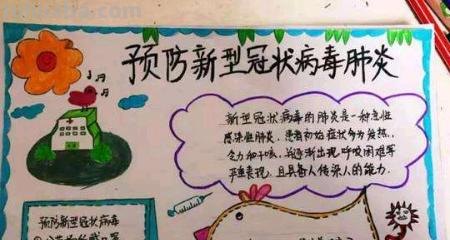 预防新型冠状病毒肺炎
新型冠状病毒的肺炎是一种急性
感染性肺炎,患者初始症状多为发热、
乏力和干咳,并逐渐出现呼吸困难等
严重表现,且具备人传染人的能力。
预防新型冠状病毒